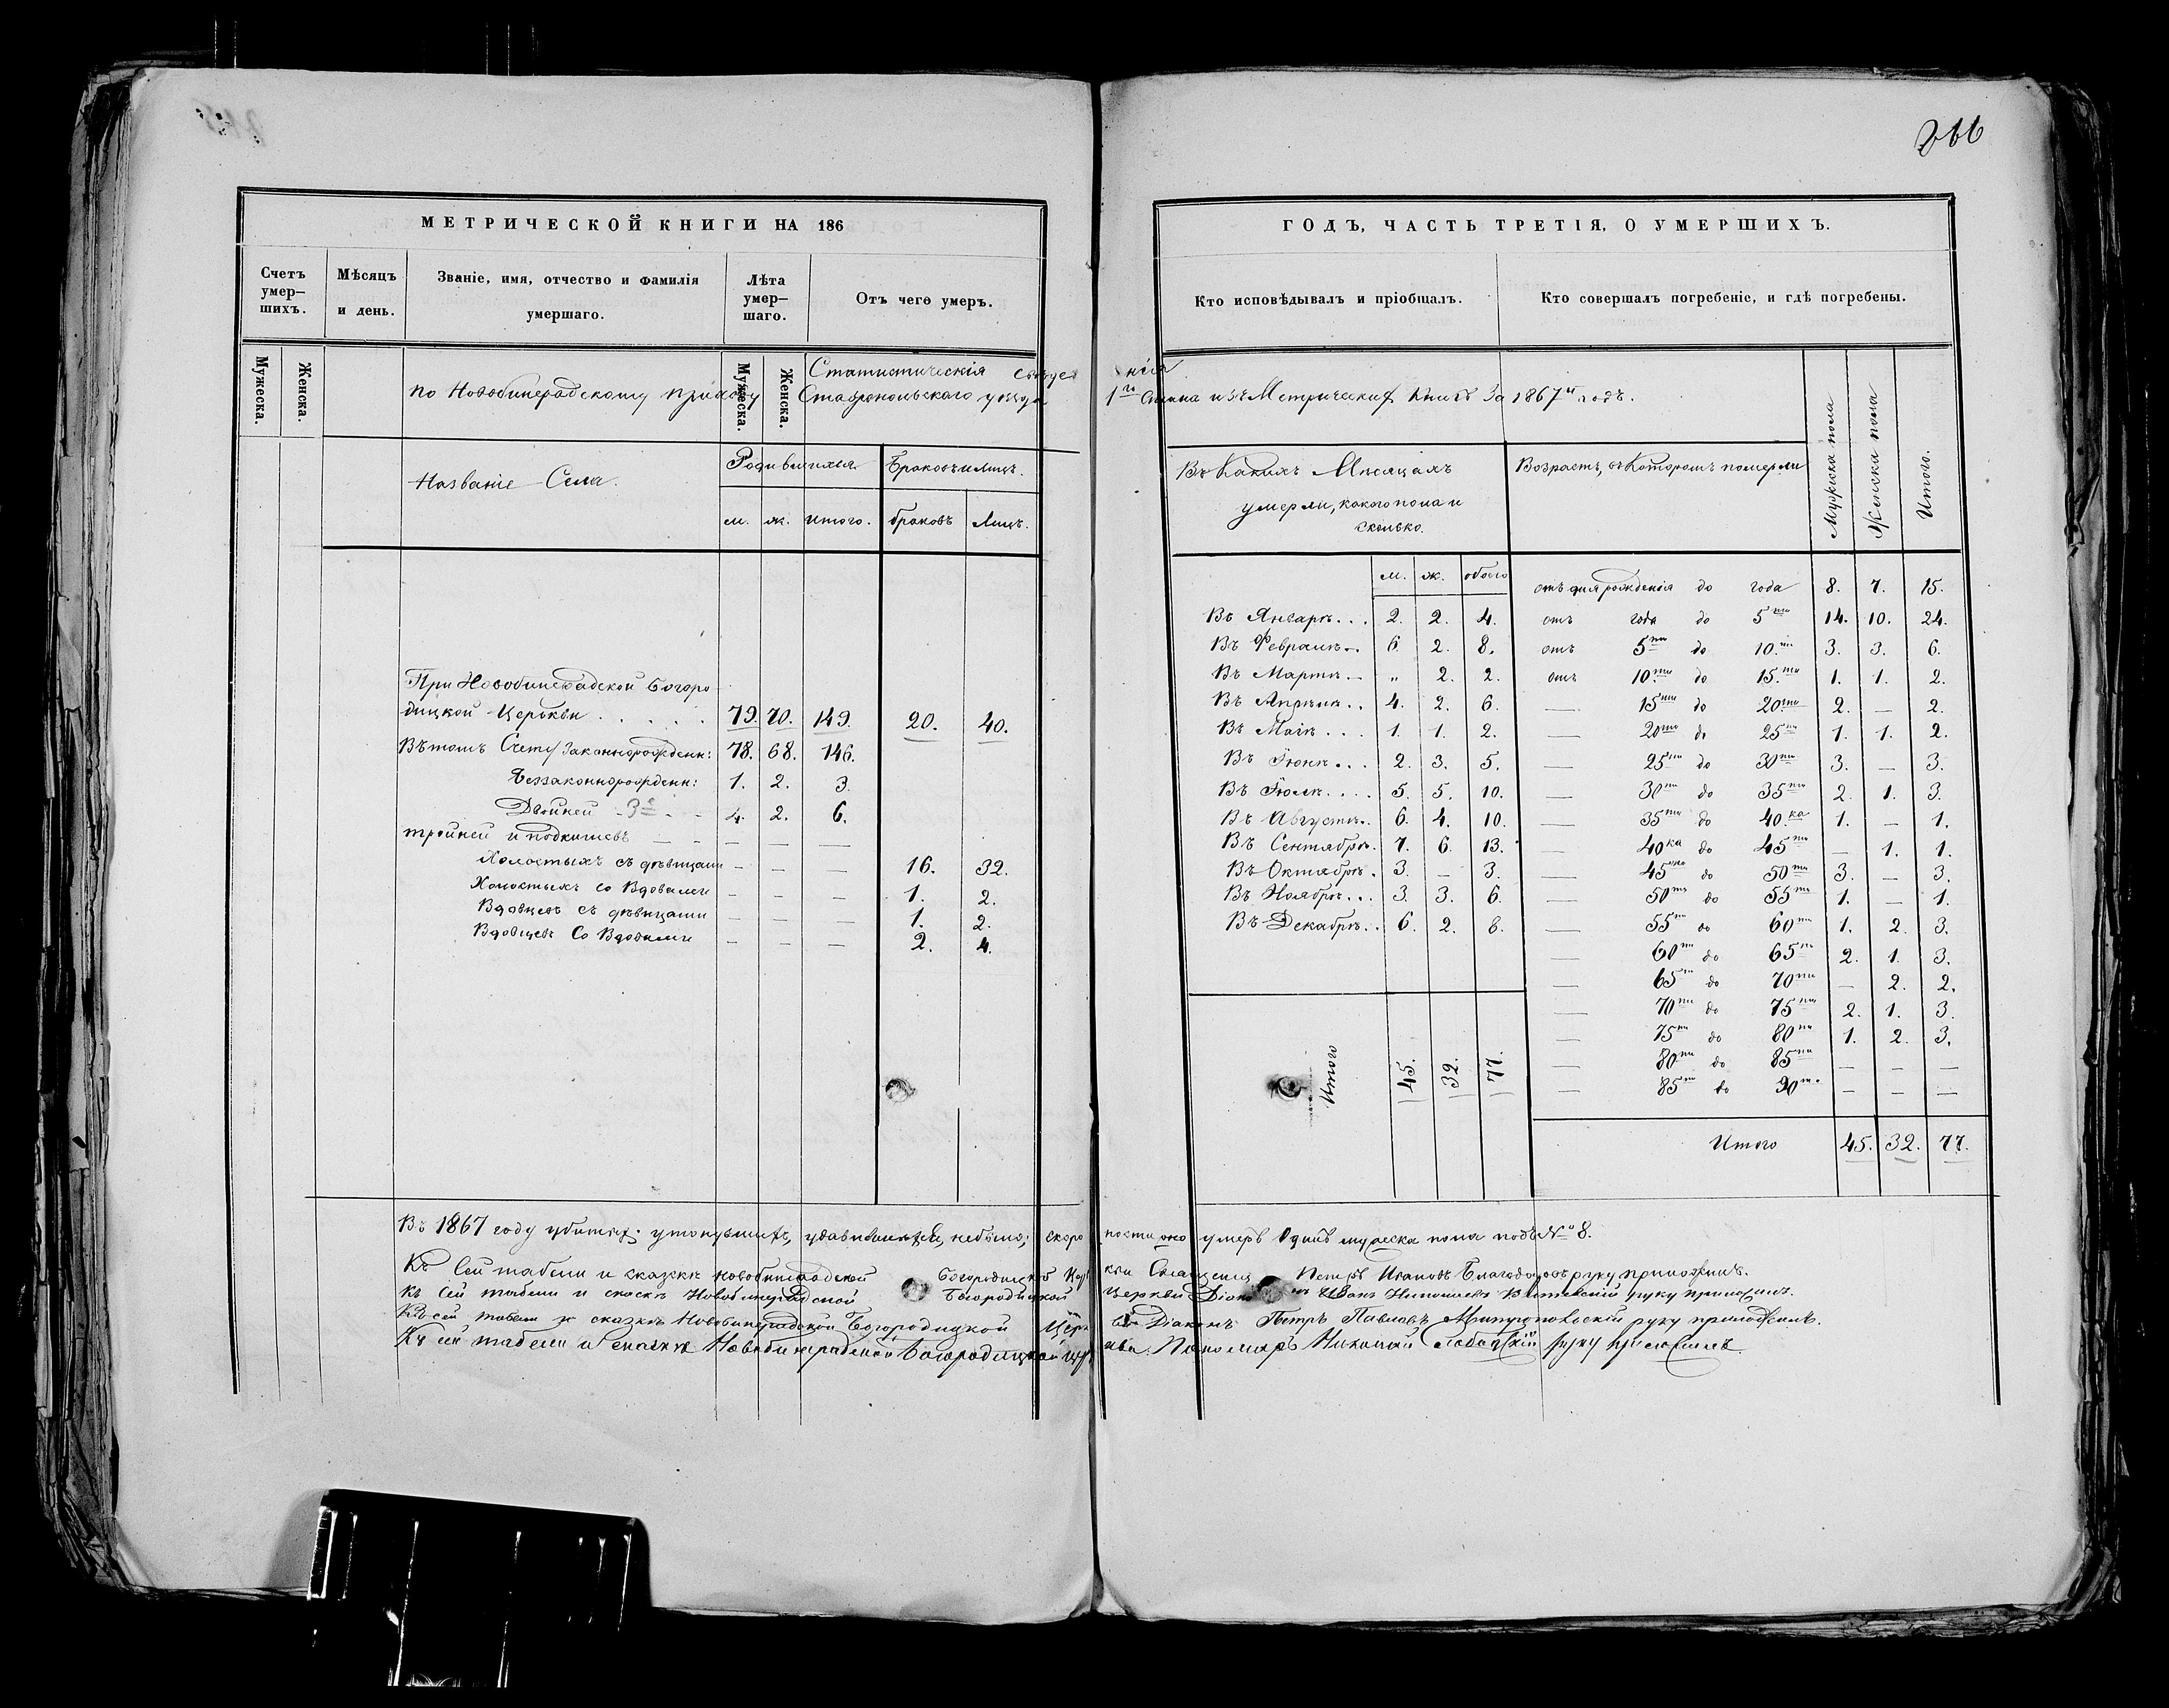 266
МЕТРИЧЕСКОЙ КНИГИ НА 186
Счетъ умер–шихъ.
Мѣсяцъ и день.
Званіе, имя, отчество и фамилія умершаго.
Лѣта умер–шаго.
Отъ чего умеръ.
Мужеска.
Женска.
Мужеска.
Женска.
По Новобинарадскому приходу
Статистическія
Ставропольскаго уѣзда
Названіе Села.
Родившихся
Браковъ и Лицъ.
м. ж. итого. браковъ Лицъ.
При Новобинарадской Богоро
дицкой Церкви . . . . . 79. 70. 149. 20. 40.
Въ томъ Счету Законнорожденн: 78. 68. 146.
Беззаконнорожденн: 1. 2. 3.
Двойней 3 4. 2. 6.
тройней и подкишевъ — — —
Холостыхъ съ дѣвицами — — — 16. 32.
Холостыхъ со Вдовами — — — 1. 2.
Вдовцевъ съ дѣвицами — — — 1. 2.
Вдовцевъ Со Вдовами — — — 2. 4.
ГОДЪ, ЧАСТЬ ТРЕТІЯ, О УМЕРШИХЪ.
Кто исповѣдывалъ и пріобщалъ.
Кто совершалъ погребеніе, и гдѣ погребены.
1го Стана изъ Метрическихъ Книгъ За 1867й годъ.
Въ Какихъ Мѣсяцахъ
умерли, какого пола и
сколько.
Возрастъ, въ Которомъ померли
Мужеска пола
Женска пола
Итого.
м. ж. обоего
Въ Январѣ. . . 2. 2. 4.
Въ Февралѣ. . 6. 2. 8.
Въ Мартѣ. — „ 2. 2.
Въ Апрѣлѣ. . 4. 2. 6.
Въ Маіѣ . . . 1. 1. 2.
Въ Іюнѣ. . . 2. 3. 5.
Въ Іюлѣ. . . . 5. 5. 10.
Въ Августѣ. . 6. 4. 10.
Въ Сентябрѣ. 7. 6. 13.
Въ Октябрѣ . 3. — 3.
Въ Ноябрѣ. . . 3. 3. 6.
Въ Декабрѣ. . 6. 2. 8.
Итого 45. 32. 77.
отъ дня рожденія до года 8. 7. 15.
отъ года до 5ти 14. 10. 24.
отъ 5ти до 10.ти 3. 3. 6.
отъ 10.ти до 15.ти 1. 1. 2.
— 15ти до 20ти 2. — 2.
— 20ти до 25ти 1. 1. 2.
— 25ти до 30ти 3. — 3.
— 30ти до 35ти 2. 1. 3.
— 35ти до 40.ка 1. — 1.
— 40ка до 45ти — 1. 1.
— 45ти до 50ти 3. — 3.
— 50ти до 55ти 1. — 1.
— 55ти до 60ти 1. 2. 3.
— 60ти до 65ти 2. 1. 3.
— 65ти до 70ти — 2. 2.
— 70ти до 75ти 2. 1. 3.
— 75ти до 80ти 1. 2. 3.
— 80ти до 85ти — — —
— 85ти до 90то — — —
Итого 45. 32. 77.
Въ 1867 году убитыхъ, утонувшихъ, удавившихся, небыло; скоропостижно умеръ Одинъ мужеска пола подъ № 8.
Къ Сей табели и сказкѣ Новобинарадской Богородицкой Церкви Священникъ Петръ Ивановъ руку приложилъ.
Къ сей табели и сказкѣ Новобинарадской Богородицкой Церкви Діаконъ Иванъ руку приложилъ.
Къ сей табели и сказкѣ Новобинарадской Богородицкой Церкви Діаконъ Петръ Павловъ руку приложилъ.
Къ сей табели и сказкѣ Новобинарадской Богородицкой Церкви Пономарь Николай руку приложилъ.